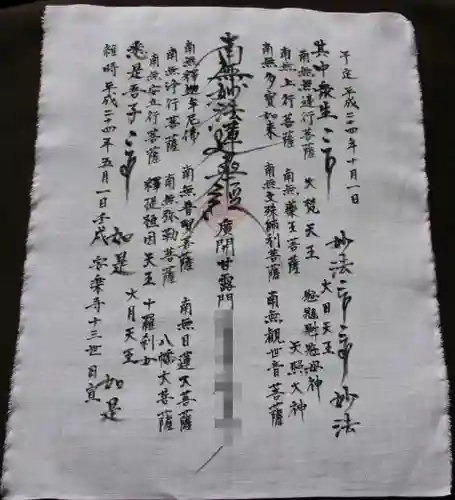 于定 平成二四年十月一日
妙法 妙法
大日天王
其中衆生
鬼子母神
大梵天王
天照大神
南無無邊行菩薩
南無上行菩薩 南無藥王菩薩
南無多寶如来 南無文殊師利菩薩 南無觀世音菩薩
南無妙法蓮華經 廣開甘露門
南無釋迦牟尼佛 南無普賢菩薩 南無日蓮大菩薩
南無浄行菩薩 南無弥勒菩薩 八幡大菩薩
南無安立行菩薩 釋提桓因天王 十羅刹女
悉是吾子 如是 大月天王 如是
維時平成二十四年五月一日 十三世 日宣